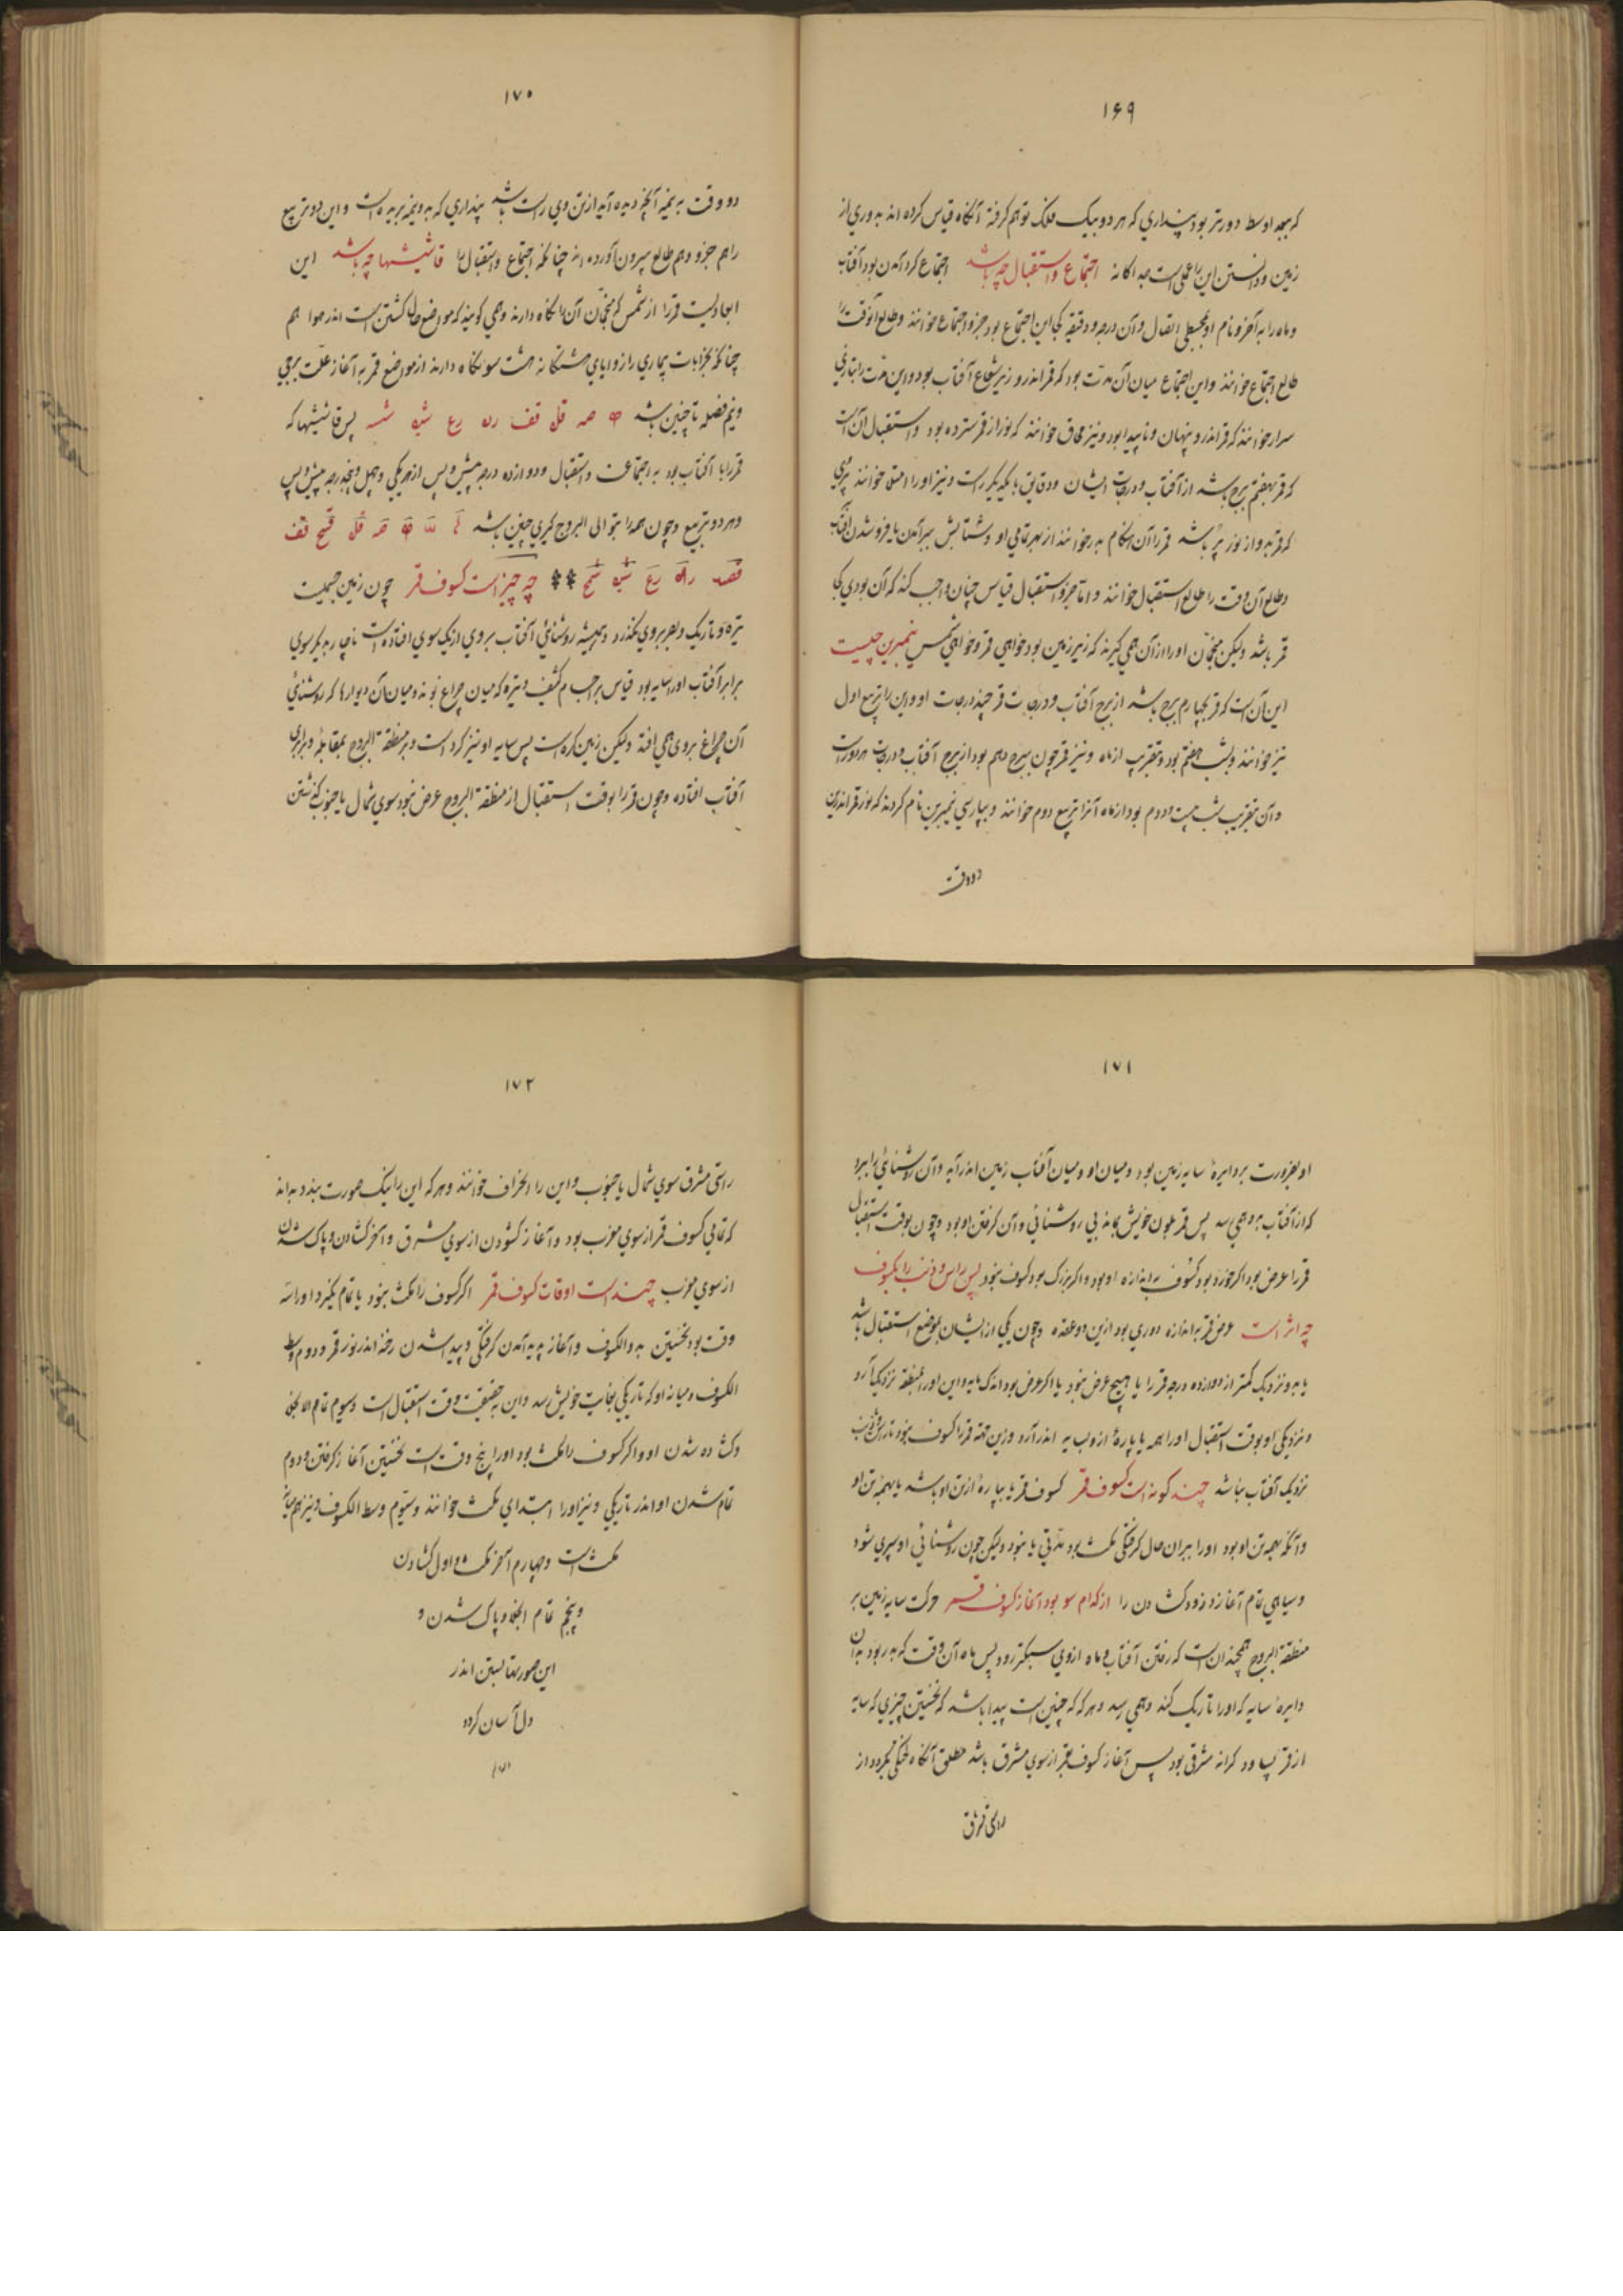 ۱۶۹
که ببعد اوسط دورتر بود پنداري که هر دو بیک فلک توهم کرفته آنکاه قیاس کرده اند بدوري از
زمین و دانستن این را عملی است جداکانه اجتماع و استقبال چه باشد اجتماع کرد آمدن بود آفتاب
و ماه را به آخر و نام او بمجسطی اتصال و آن درجه و دقیقه کجا این اجتماع بود جزو اجتماع خوانند و طالع آنوقت را
طالع اجتماع خوانند و این اجتماع میان آن مدت بود که قمر اندرو زیر شعاع آفتاب بود و این مدت را بتازي
سرار خوانند که قمر اندرو پنهان و ناپیدا بود و نیز محاق خوانند که نور از قمر سترده بود و استقبال آن است
که قمر بهفتم برج باشد از آفتاب و درجات ایشان و دقایق با یکدیکر راست و نیز او را امتلا خوانند پري
که قمر بدو از نور پر باشد قمر را آن هنکام بدر خوانند از بهر تمامي او و شتابش ببرآمدن با فروشدن آفتاب
و طالع آن وقت را طالع استقبال خوانند و اما جزو استقبال قیاس چنان واجب کند که آن بودي کجا
قمر باشد ولیکن منجمان او را از آن همي کیرند که زبر زمین بود خواهي قمر و خواهي شمس نیمبرین چیست
این آن است که قمر بچهارم برج باشد از برج آفتاب و درجات قمر چند درجات او و این را تربیع اول
نیز خوانند و بشب هفتم بود بتقریب از ماه و نیز قمر چون ببرج دهم بود از برج آفتاب و درجات هر دو راست
و آن بتقریب شب بیست و دوم بود از ماه آنرا تربیع دوم خوانند و بپارسي نیمبرین نام کردند که نور قمر اندرین
دو وقت
۱۷۰
دو وقت به نیمه آنچه دیده آید از تن وي راست باشد پنداري که بدو نیمه بریده است و این دو تربیع
را هم جزو و هم طالع بیرون آورده اند چنانکه اجتماع و استقبال را فاسیشها چه باشد این
ابعادیست قمر را از شمس که منجمان آن را نکاه دارند و همي کویند که مواضع حال کشتن است اندر هوا هم
چنانکه بحرانات بیماري را زوایاي هشتکانه هشت سو نکاه دارند از مواضع قمر به آغاز علت برجي
و نیم فضله تا چنین باشد مه صه قله قف رکه رع شیه شسه پس فاسیشها که
قمر را با آفتاب بود به اجتماعست و استقبال و دوازده درجه پیش و پس از هر یکي و چهل و پنج درجه پیش و پس
و هر دو تربیع و چون همه را بتوالی البروج کیري چنین باشد
چه چیز است کسوف قمر چون زمین جسمیست
تیره و تاریک و بصر بروي نکذرد و همیشه روشنائي آفتاب بروي از یک سوي افتاده است ناچار بدیکر سوي
برابر آفتاب او را سایه بود قیاس بر اجسام کثیف و تیره که میان چراغ بوند و میان آن دیوارها که روشنائي
آن چراغ بروي همي افتد ولیکن زمین کره است پس سایه او نیز کرد است و بر منطقة البروج بمقابله و برابري
آفتاب افتاده و چون قمر را بوقت استقبال از منطقة البروج عرض نبود سوي شمال یا جنوب کذشتن
۱۷۱
او بضرورت بر دایرهٔ سایه زمین بود و میان او و میان آفتاب زمین اندر آید و آن روشنائي را ببرد
که از آفتاب بدو همي رسد پس قمر بلون خویش بماند بي روشنائي و آن کرفتن او بود و چون بوقت استقبال
قمر را عرض بود اکر خورد بود کسوف به اندازه او بود و اکر بزرک بود کسوف نبود پس راس و ذنب را بکسوف
چه اثر است عرض قمر به اندازه دوري بود ازین دو عقده و چون یکي از ایشان بموضع استقبال باشد
یا بدو نزدیک کمتر از دوازده درجه قمر را یا هیچ عرض نبود یا اکر عرض بود اندک مایه و این او را بمنطقه نزدیک آرد
و نزدیکي او بوقت استقبال او را همه یا پارهٔ ازو بسایه اندر آرد و زین جهت قمر را کسوف نبود تا راس و ذنب
نزدیک آفتاب نباشد چند کونه است کسوف قمر کسوف قمر یا بپارهٔ از تن او باشد یا بهمه تن او
و آنکه بهمه تن او بود او را بر آن حال کرفتکي مکث بود مدتي یا نبود ولیکن چون روشنائي او سپري شود
و سیاهي تمام آغازد زود کشادن را از کدام سو بود آغاز کسوف قمر حرکت سایه زمین بر
منطقة البروج همچندان است که رفتن آفتاب و ماه ازوي سبکتر رود پس ماه آن وقت که بدر بود بدان
دایرهٔ سایه که او را تاریک کند همي رسد و هر که که چنین است پیدا باشد که نخستین چیزي که سایه
از قمر بساود کرانه مشرقي بود پس آغاز کسوف قمر از سوي مشرق باشد مطلق آنکاه بختکي نکردد از
راستي مشرق
۱۷۲
راستي مشرق سوي شمال یا جنوب و این را انحراف خوانند و هر که این را نیک صورت بندد بداند
که تمامي کسوف قمر از سوي مغرب بود و آغاز کشودن از سوي مشرق و آخر کشادن و پاک شدن
از سوي مغرب چند است اوقات کسوف قمر اکر کسوف را مکث نبود یا تمام نکیرد او را سه
وقت بود نخستین بدو الکسوف و آغاز پدید آمدن کرفتکي و پیدا شدن رخنه اندر نور قمر و دوم وسط
الکسوف و میانه او که تاریکي بغایت خویش رسد و این بحقیقت وقت استقبال است و سیوم تمام الانجلا
و کشاده شدن او و اکر کسوف را مکث بود او را پنج وقت است نخستین آغاز کرفتن و دوم
تمام شدن او اندر تاریکي و نیز او را ابتداي مکث خوانند و سیوم وسط الکسوف و نیز هم میانه
مکث است و چهارم آخر مکث و اول کشادن
و پنجم تمام انجلا و پاک شدن و
این صورتها بستن اندر
دل آسان کردد